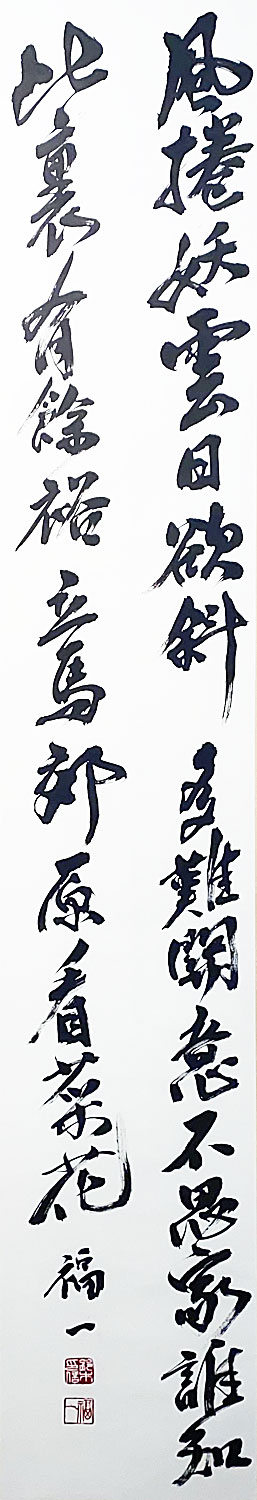 風捲妖雲日欲斜多難關意不思家誰知
此裏有餘裕立馬郊原看菜花福一